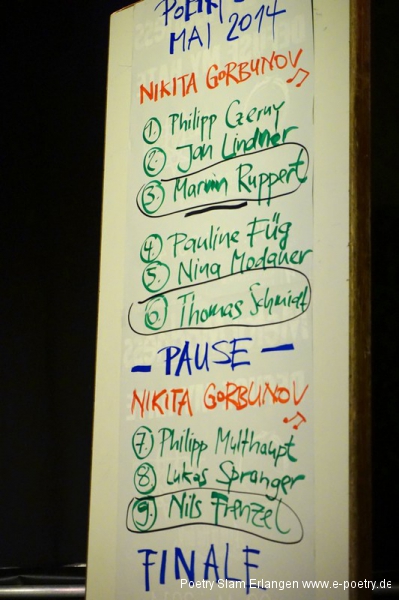 MAI 2014
NIKITA GORBUNOV
1. Philipp Czerny
2. Jan Lindner
3. Marvin Ruppert
4. Pauline Füg
5. Nina Modauer
6. Thomas Schmidt
- PAUSE -
NIKITA GORBUNOV
7. Philipp Multhaupt
8. Lukas Spranger
9. Nils Frenzel
FINALE
Poetry Slam Erlangen www.e-poetry.de